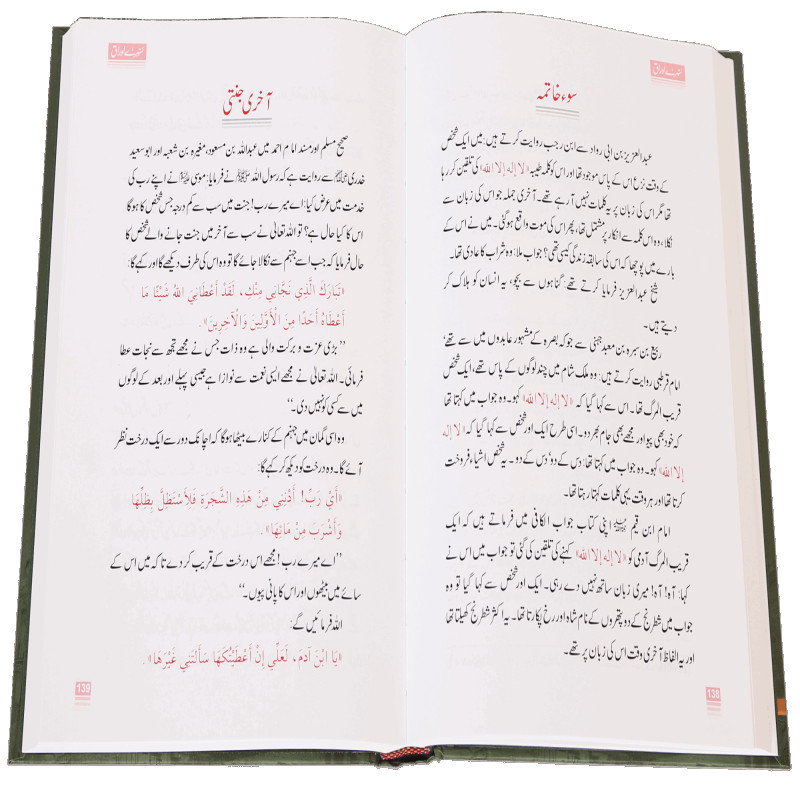 سنہرے اوراق
سوء خاتمہ
عبدالعزیز بن ابی رواد سے ابن رجب روایت کرتے ہیں: میں ایک شخص
کے وقت نزع اس کے پاس موجود تھا اور اس کو کلمہ طیبہ «لا إله إلا الله» کی تلقین کر رہا
تھا مگر اس کی زبان پر یہ کلمات نہیں آ رہے تھے۔ آخری جملہ جو اس کی زبان سے
نکلا، وہ اس کلمہ سے انکار پر مشتمل تھا، پھر اس کی موت واقع ہو گئی۔ میں نے اس کے
بارے میں پوچھا کہ اس کی سابقہ زندگی کیسی تھی؟ جواب ملا: وہ شراب کا عادی تھا۔
شیخ عبدالعزیز فرمایا کرتے تھے: گناہوں سے بچو، یہ انسان کو ہلاک کر
دیتے ہیں۔
ربیع بن سبرہ بن معبد جہنی سے جو کہ بصرہ کے مشہور عابدوں میں سے تھے،
امام قرطبی روایت کرتے ہیں: وہ ملک شام میں چند لوگوں کے پاس تھے، ایک شخص
قریب المرگ تھا۔ اس سے کہا گیا کہ «لا إله إلا الله» کہو۔ وہ جواب میں کہتا تھا
کہ خود بھی پیو اور مجھے بھی جام بھر دو۔ اسی طرح ایک اور شخص سے کہا گیا کہ «لا إله
إلا الله» کہو۔ وہ جواب میں کہتا تھا: دس کے دو، دس کے دو۔ یہ شخص اشیاء فروخت
کرتا تھا اور ہر وقت یہی کلمات کہتا رہتا تھا۔
امام ابن قیم رحمہ اللہ اپنی کتاب جواب الکافی میں فرماتے ہیں کہ ایک
قریب المرگ آدمی کو «لا إله إلا الله» کہنے کی تلقین کی گئی تو جواب میں اس نے
کہا: آہ! آہ! میری زبان ساتھ نہیں دے رہی۔ ایک اور شخص سے کہا گیا تو وہ
جواب میں شطرنج کے دو پتھروں کے نام شاہ اور رخ پکارتا تھا۔ یہ اکثر شطرنج کھیلتا تھا
اور یہ الفاظ آخری وقت اس کی زبان پر تھے۔
138
سنہرے اوراق
آخری جنتی
صحیح مسلم اور مسند امام احمد میں عبداللہ بن مسعود، مغیرہ بن شعبہ اور ابو سعید
خدری رضی اللہ عنہم سے روایت ہے کہ رسول اللہ ﷺ نے فرمایا: موسیٰ علیہ السلام نے اپنے رب کی
خدمت میں عرض کیا: اے میرے رب! جنت میں سب سے کم درجہ جس شخص کا ہوگا
اس کا کیا حال ہے؟ تو اللہ تعالیٰ نے سب سے آخر میں جنت جانے والے شخص کا
حال فرمایا کہ جب اسے جہنم سے نکالا جائے گا تو وہ اس کی طرف دیکھے گا اور کہے گا:
«تَبَارَكَ الَّذِي نَجَّانِي مِنْكِ، لَقَدْ أَعْطَانِيَ اللهُ شَيْئًا مَا
أَعْطَاهُ أَحَدًا مِنَ الْأَوَّلِينَ وَالْآخِرِينَ».
’’بڑی عزت و برکت والی ہے وہ ذات جس نے مجھے تجھ سے نجات عطا
فرمائی۔ اللہ تعالیٰ نے مجھے ایسی نعمت سے نوازا ہے جیسی پہلے اور بعد کے لوگوں
میں سے کسی کو نہیں دی۔‘‘
وہ اسی گمان میں جہنم کے کنارے بیٹھا ہوگا کہ اچانک دور سے ایک درخت نظر
آئے گا۔ وہ درخت کو دیکھ کر کہے گا:
«أَيْ رَبِّ! أَدْنِنِي مِنْ هَذِهِ الشَّجَرَةِ فَلِأَسْتَظِلَّ بِظِلِّهَا
وَأَشْرَبَ مِنْ مَائِهَا».
’’اے میرے رب! مجھے اس درخت کے قریب کر دے تا کہ میں اس کے
سائے میں بیٹھوں اور اس کا پانی پیوں۔‘‘
اللہ فرمائیں گے:
«يَا ابْنَ آدَمَ، لَعَلِّي إِنْ أَعْطَيْتُكَهَا سَأَلْتَنِي غَيْرَهَا».
139